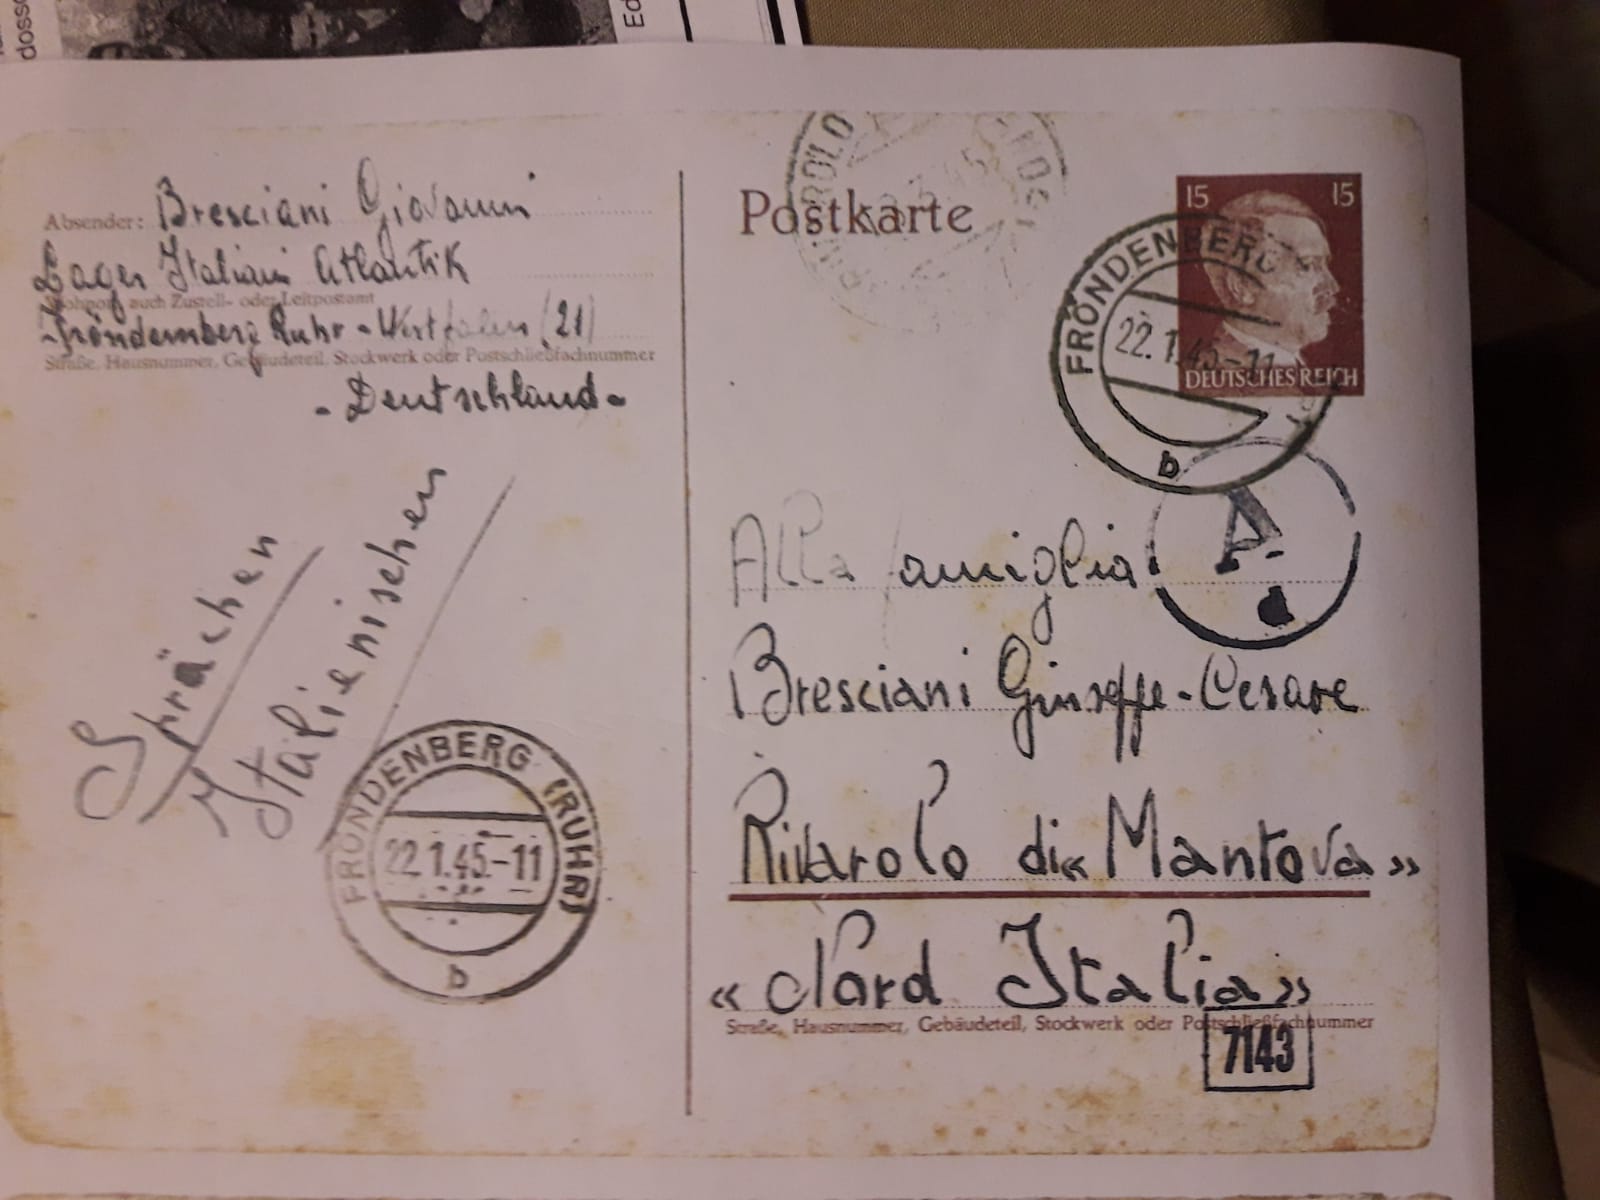 doss
Ed
Absender: Bresciani Giovanni
Lager Italiani Atlantik
Wohnort, auch Zustell- oder Leitpostamt
Fröndemberg Ruhr - Westfalen (21)
Straße, Hausnummer, Gebäudeteil, Stockwerk oder Postschließfachnummer
- Deutschland -
Sprächen
Italienischen
FRÖNDENBERG (RUHR)
22.1.45-11
b
Postkarte
15 15
DEUTSCHES REICH
FRÖNDENBERG
22.1.45-11
b
A
d
Alla famiglia
Bresciani Giuseppe-Cesare
Rivarolo di « Mantova »
« Nord Italia »
Straße, Hausnummer, Gebäudeteil, Stockwerk oder Postschließfachnummer
7143